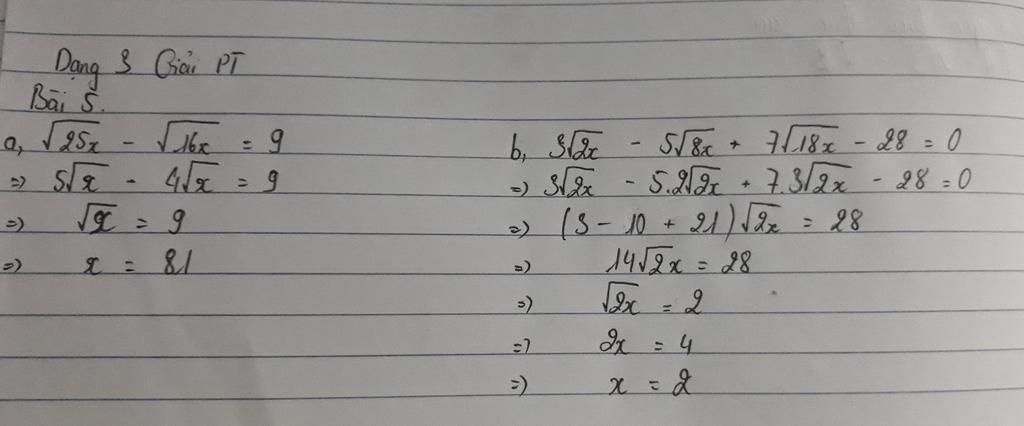 Dạng 3 Giải PT
Bài 5.
a, √25x - √16x = 9
=> 5√x - 4√x = 9
=> √x = 9
=> x = 81
b, 3√2x - 5√8x + 7√18x - 28 = 0
=> 3√2x - 5.2√2x + 7.3√2x - 28 = 0
=> (3 - 10 + 21)√2x = 28
=> 14√2x = 28
=> √2x = 2
=> 2x = 4
=> x = 2